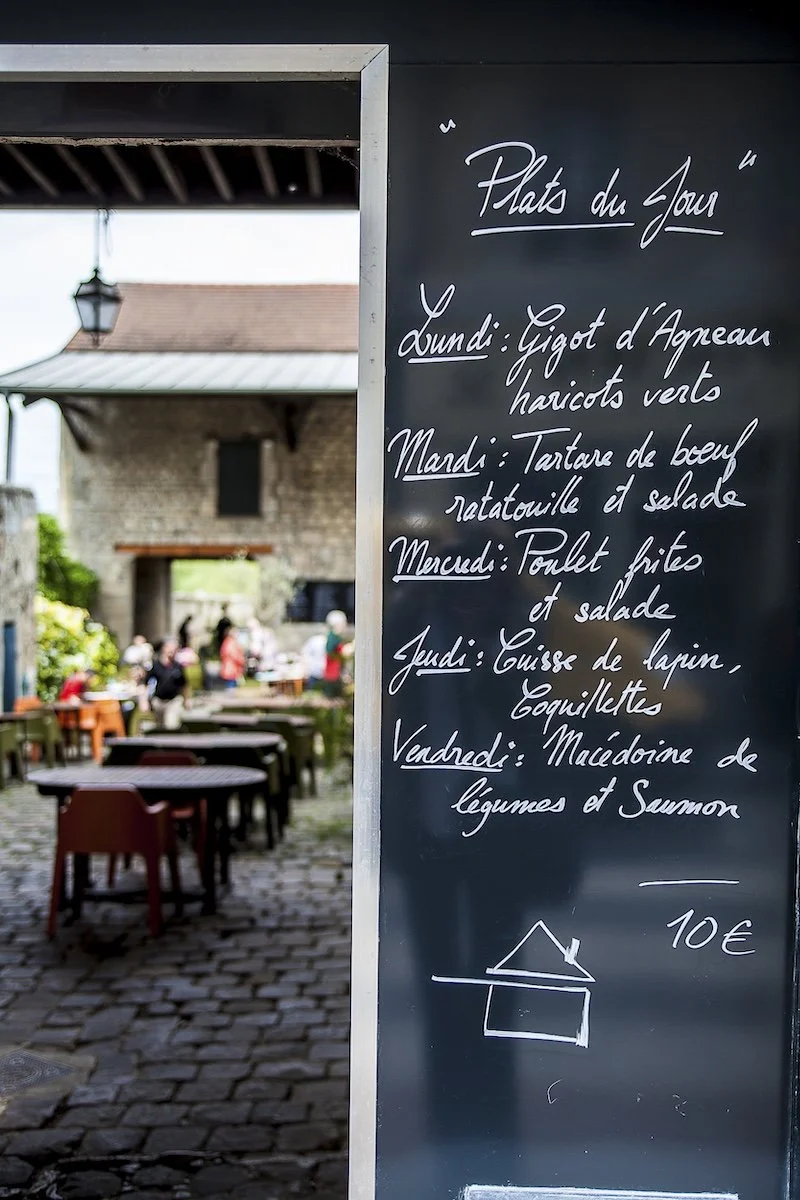 " Plats du Jour "
Lundi : Gigot d'Agneau
haricots verts
Mardi : Tartare de bœuf
ratatouille et salade
Mercredi : Poulet frites
et salade
Jeudi : Cuisse de lapin,
Coquillettes
Vendredi : Macédoine de
légumes et Saumon
10€